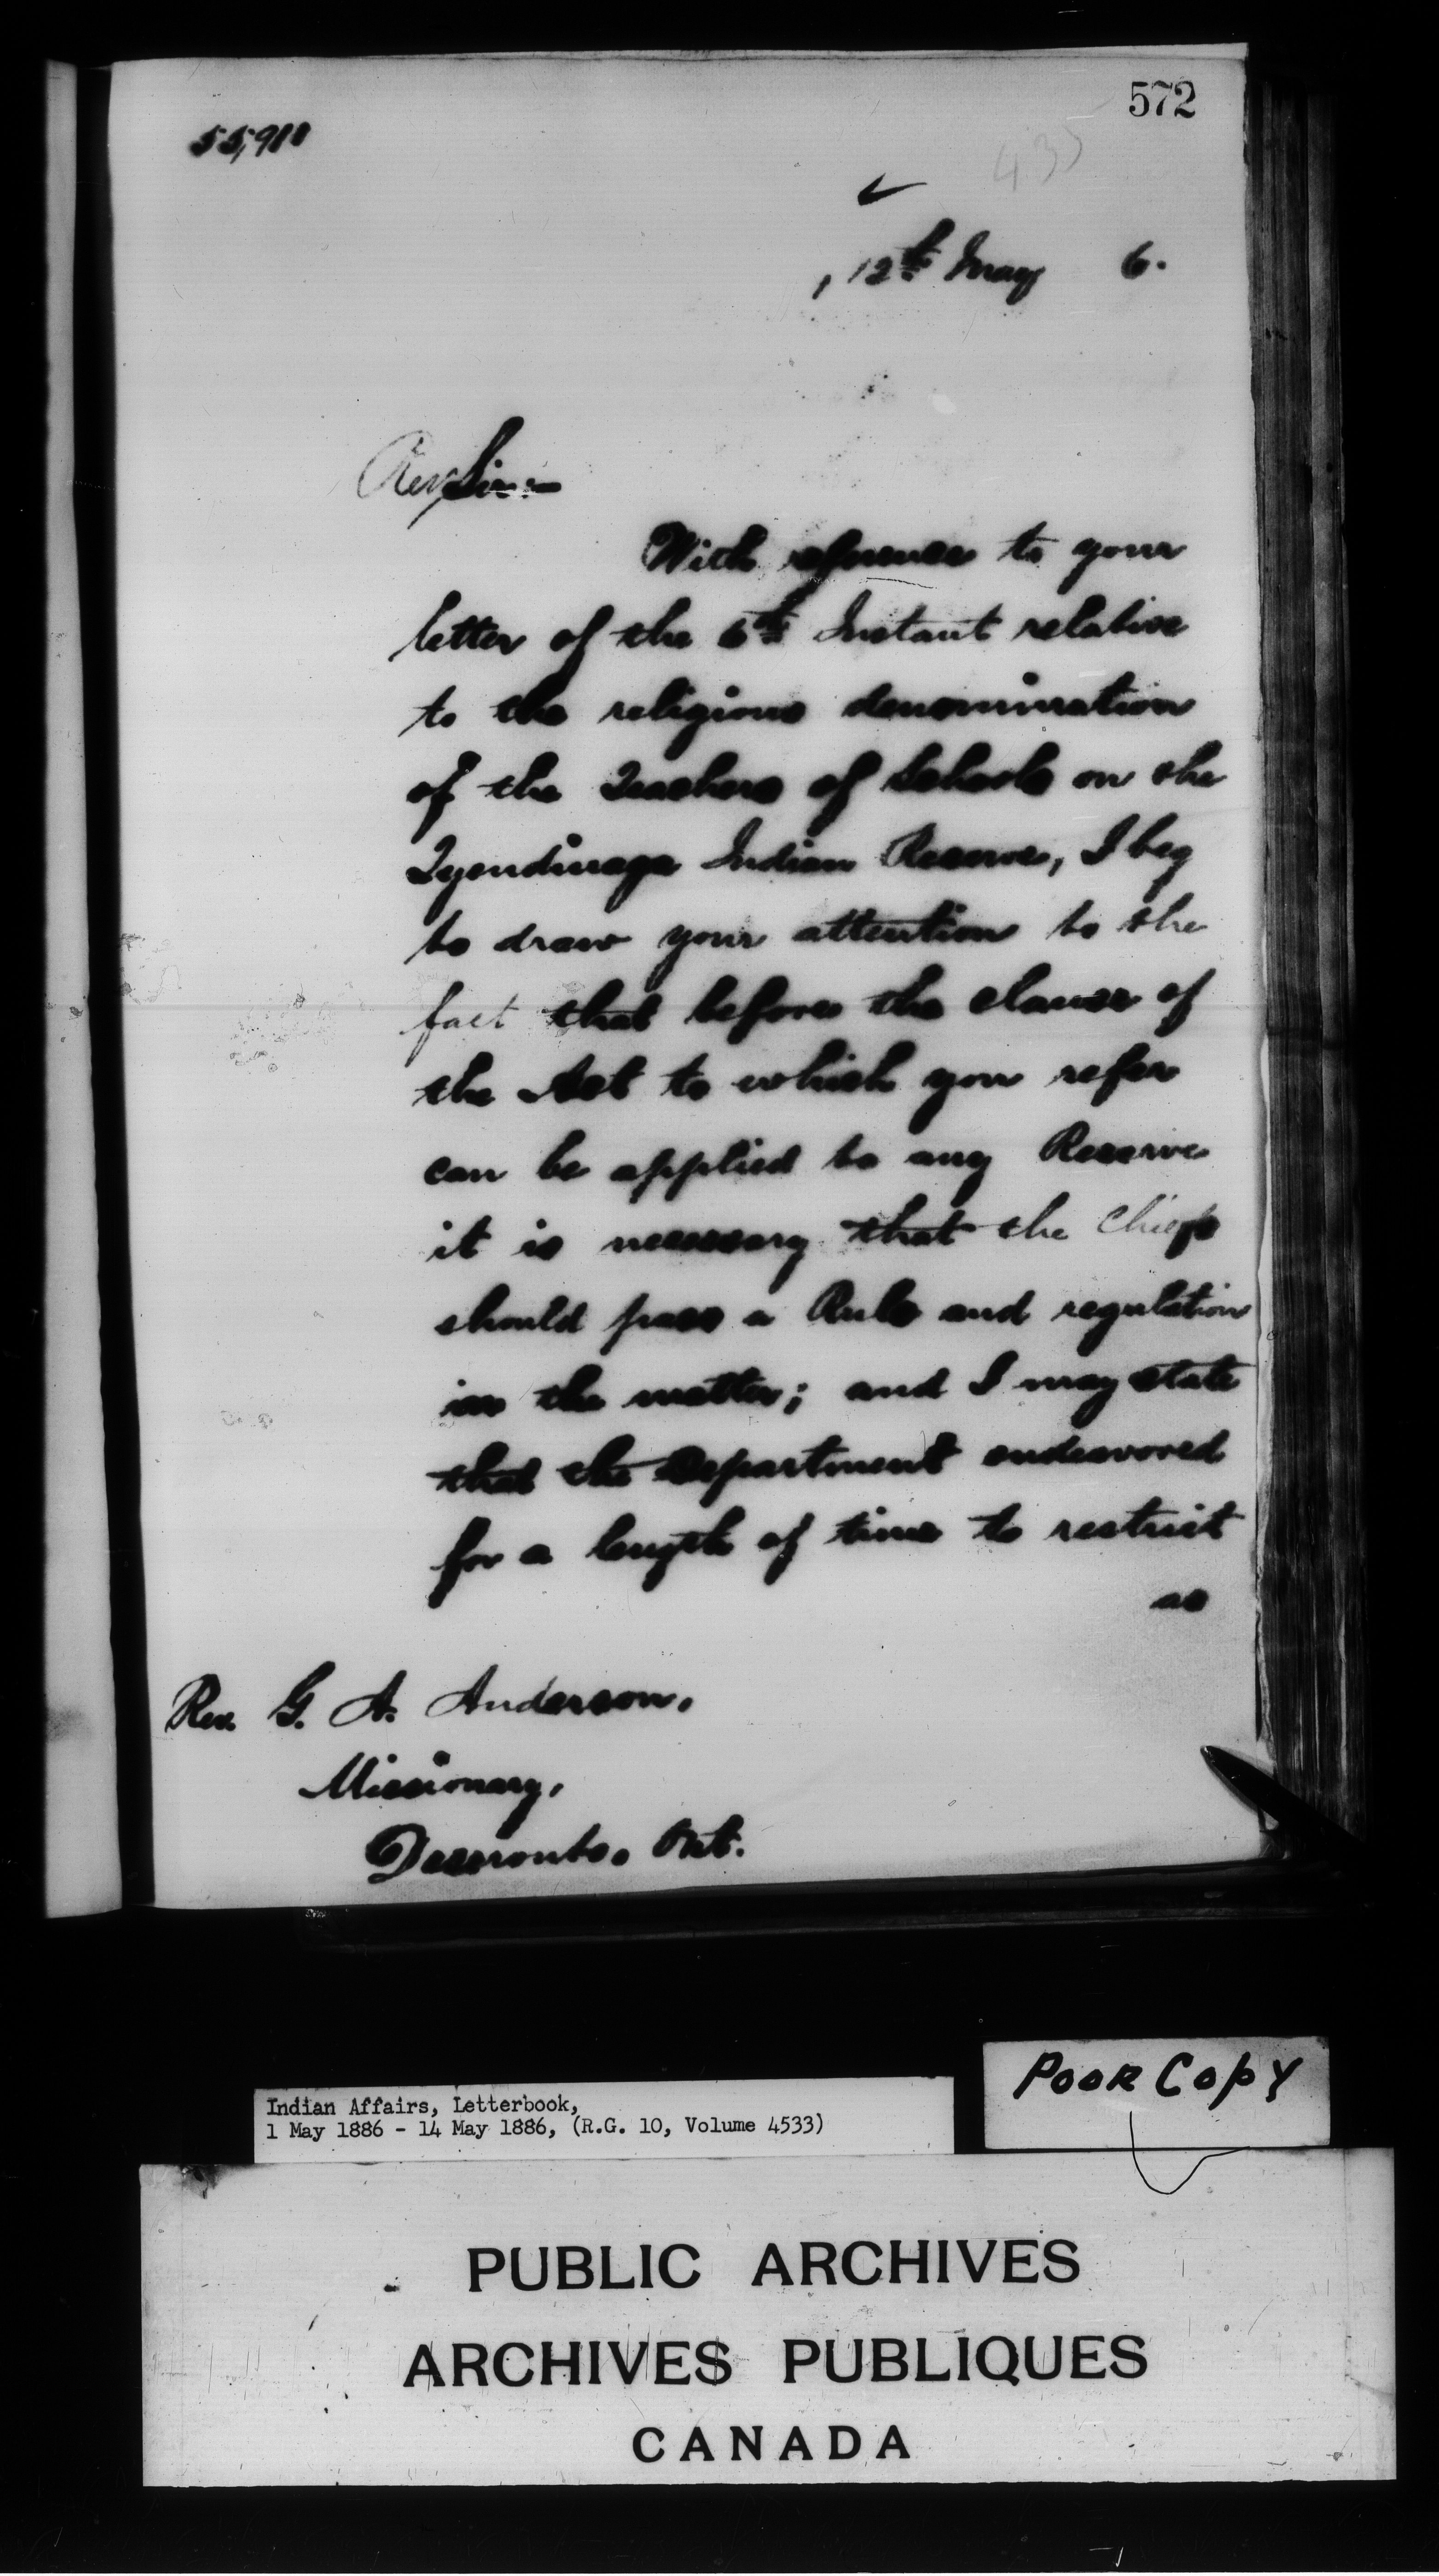 572
55,911
12th May 6.
Rev Sir:-
With reference to your
letter of the 6th Instant relative
to the religious denomination
of the Teachers of Schools on the
Tyendinaga Indian Reserve, I beg
to draw your attention to the
fact that before the clause of
the Act to which you refer
can be applied to any Reserve
it is necessary that the Chiefs
should pass a Rule and regulation
in the matter; and I may state
that the Department endeavored
for a length of time to restrict
as
Rev. G. A. Anderson,
Missionary,
Deseronto, Ont.
Poor Copy
Indian Affairs, Letterbook,
1 May 1886 - 14 May 1886, (R.G. 10, Volume 4533)
PUBLIC ARCHIVES
ARCHIVES PUBLIQUES
CANADA